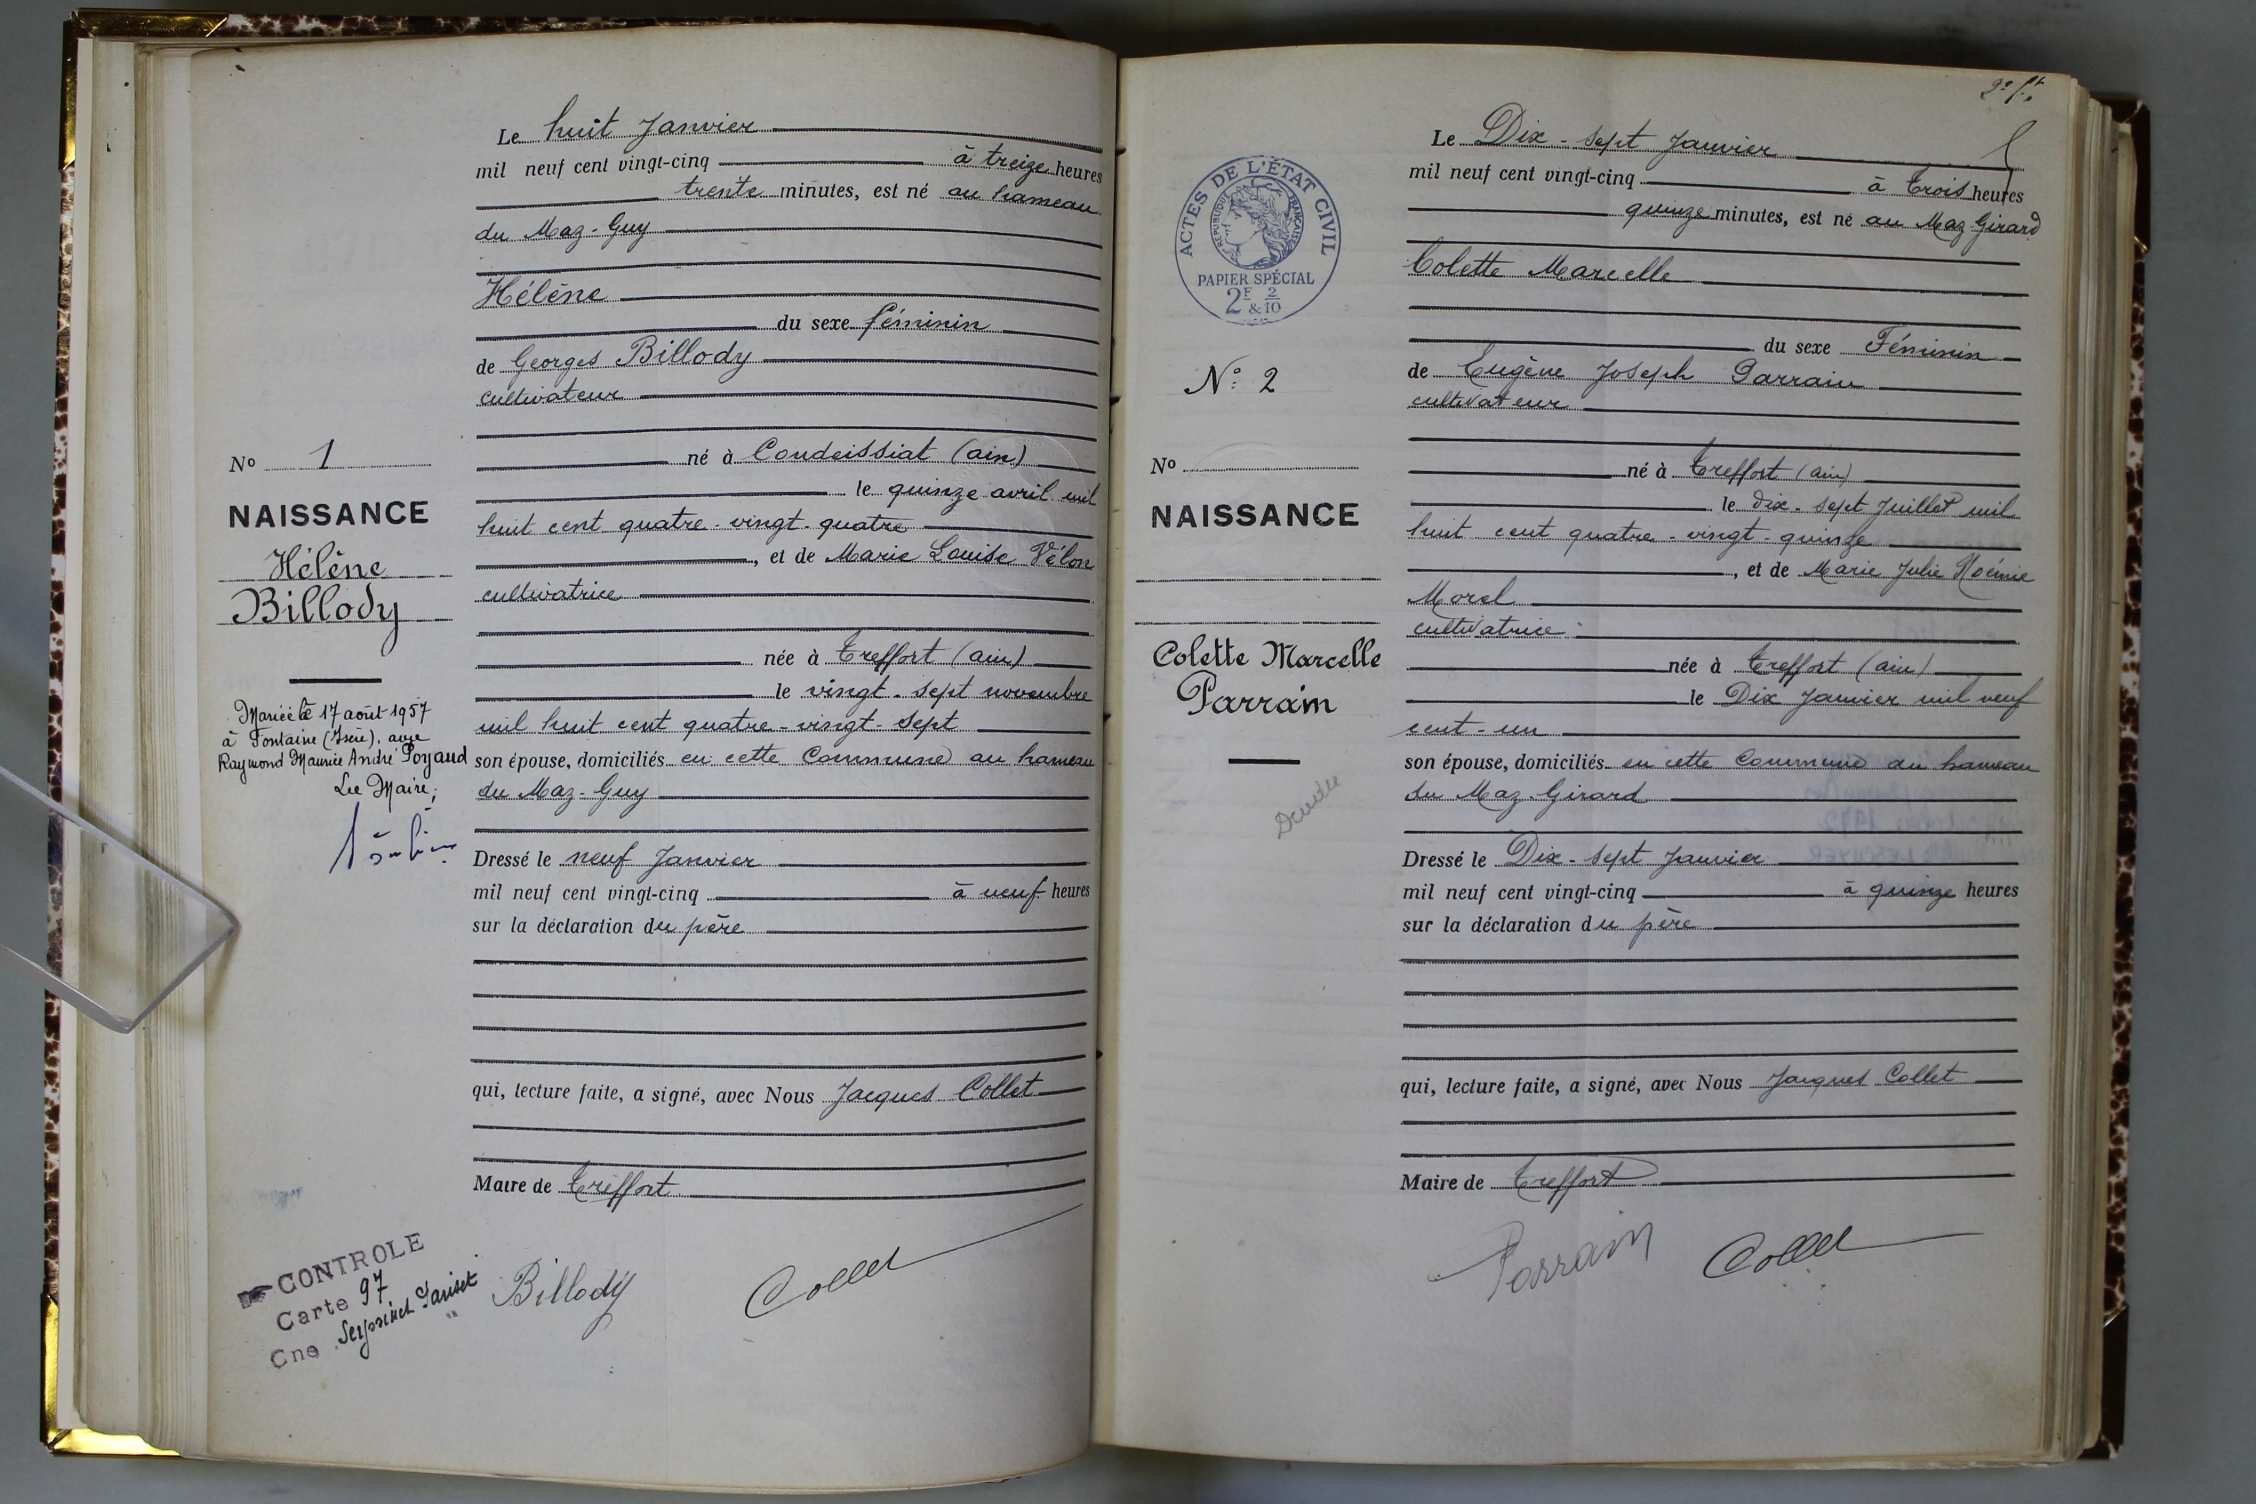 Le huit Janvier
mil neuf cent vingt-cinq à treize heures
trente minutes, est né au hameau
du Maz-Guy
Hélène
du sexe féminin
de Georges Billody
cultivateur
né à Condeissiat (ain)
le quinze avril mil
huit cent quatre-vingt-quatre
, et de Marie Louise Vélon
cultivatrice
née à Treffort (ain)
le vingt-sept novembre
mil huit cent quatre-vingt-sept
son épouse, domiciliés en cette Commune au hameau
du Maz-Guy
Dressé le neuf Janvier
mil neuf cent vingt-cinq à neuf heures
sur la déclaration du père
qui, lecture faite, a signé, avec Nous Jacques Collet
Maire de Treffort
Billody Collet
No 1
NAISSANCE
Hélène
Billody
Mariée le 17 août 1957
à Fontaine (Isère), avec
Raymond Maurice André Poyaud
Le Maire,
CONTROLE
Carte 97
Cne Seyssinet Pariset
2e ft
Le Dix-sept Janvier
mil neuf cent vingt-cinq à Trois heures
quinze minutes, est né au Maz-Girard
Colette Marcelle
du sexe Féminin
de Eugène Joseph Parrain
cultivateur
né à Treffort (ain)
le dix-sept Juillet mil
huit cent quatre-vingt-quinze
, et de Marie Julie Noémie
Morel
cultivatrice
née à Treffort (ain)
le Dix Janvier mil neuf
cent-un
son épouse, domiciliés en cette Commune au hameau
du Maz-Girard
Dressé le Dix-sept Janvier
mil neuf cent vingt-cinq à quinze heures
sur la déclaration du père
qui, lecture faite, a signé, avec Nous Jacques Collet
Maire de Treffort
Parrain Collet
ACTES DE L'ÉTAT CIVIL
RÉPUBLIQUE FRANÇAISE
PAPIER SPÉCIAL
2F 2
& 10
No 2
No
NAISSANCE
Colette Marcelle
Parrain